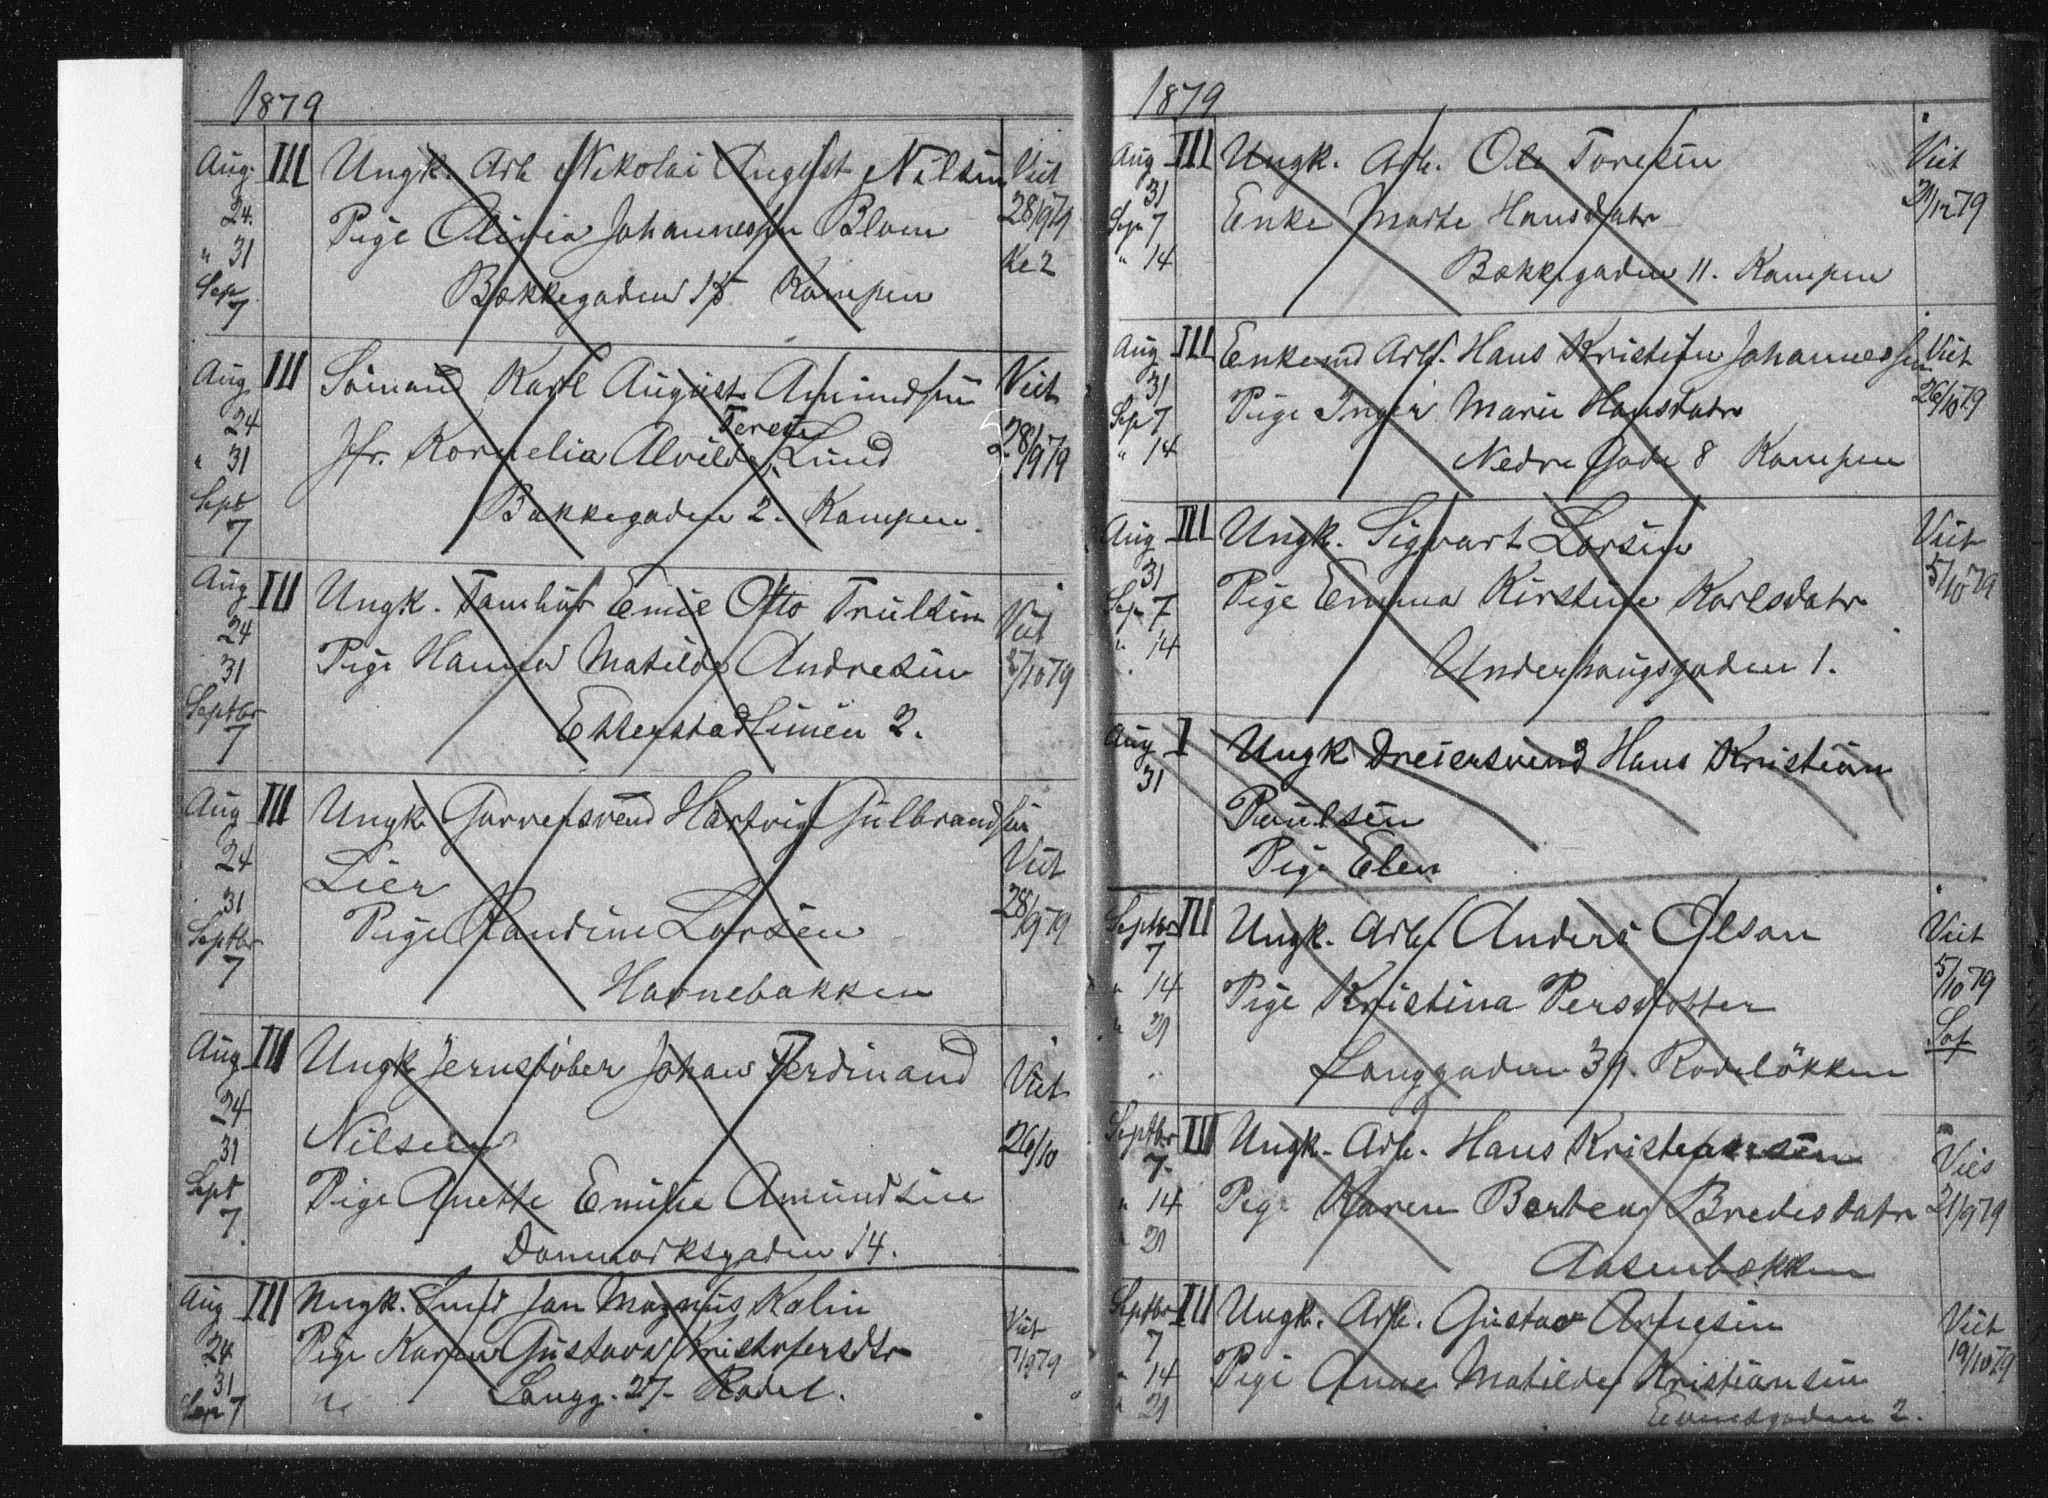 1879
Aug. 24. " 31 Sep 7 III Ungk. Arb Nikolai August Nilsen Viet 28/9 79
Pige Olivia Johannessen Blom Ke 2
Bækkegaden 15 Kampen
Aug 24 " 31 Sept 7 III Sömand Karl August Amundsen Viet 28/9 79
Terese
Jfr. Kornelia Alvilde Lund
Bakkegaden 2. Kampen.
Aug 24 31 Septbr 7 III Ungk. Tomhus Emil Otto Trulsen Viet
Pige Hanna Matilde Andresen /10 79
Etterstadlinien 2.
Aug 24 31 Septbr 7 III Ungk Garversvend Hartvig Gulbrandsen
Lier Viet 28/9 79
Pige Randine Larsen
Havnebakken
Aug 24 31 Sept 7. III Ungk Jernstöber Johan Ferdinand Viet
Nilsen 26/10
Pige Anette Emilie Amundsen
Danmarksgaden 14.
Aug 24 31 Sep 7 III Ungk. Smed Jan Magnus Kalin Viet
Pige Karen Gustava Kristofersdtr 7/9 79
Langg. 27. Rodel.
1879
Aug 31 Sep 7 " 14 III Ungk. Arb. Ole Toresen Viet
Enke Marte Hansdatr /12 79
Bækkegaden 11. Kampen
Aug 31 Sep 7 " 14 III Enkemd Arb. Hans Kristian Johannessen Viet 26/10 79
Pige Inger Marie Hansdatr
Nedre Gade 8 Kampen
Aug 31 Sep 7 " 14 III Ungk. Sigvart Larsen Viet 5/10 79
Pige Emma Kirstine Karlsdatr
Underhaugsgaden 1.
Aug 31 I Ungk Dreiersvend Hans Kristian
Paulsen
Pige Elen
Septbr 7 " 14 " 21 III Ungk. Arb. Anders Olsen Viet 5/10 79
Pige Kristina Persdotter Sof
Langgaden 39. Rodelökken
Septbr 7. " 14 " 21 III Ungk. Arb. Hans Kristensen Vies
Pige Karen Bertea Bredesdatr 21/9 79
Aasenbakken
Septbr 7 " 14 " 21 III Ungk. Arb. Gustav Arnesen Viet 19/10 79
Pige Anne Matilde Kristiansen
gaden 2.